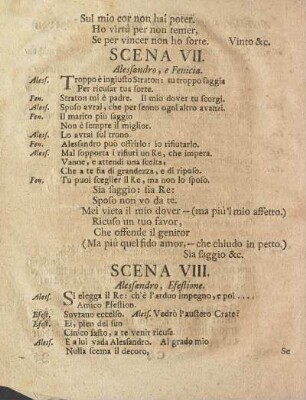 Sul mio cor non hai poter.
Ho virtù per non temer,
Se per vincer non ho sorte. Vinto &c.
SCENA VII.
Alessandro, e Fenicia.
Aless. Troppo è ingiusto Straton: tu troppo saggia
Per ricusar tua sorte.
Fen. Straton m'è padre. Il mio dover tu scorgi.
Aless. Sposo avrai, che per senno ogni altro avanzi.
Fen. Il marito più saggio
Non è sempre il miglior.
Aless. Lo avrai sul trono.
Fen. Alessandro può offrirlo: io rifiutarlo.
Aless. Mal sopporta i rifiuti un Re, che impera.
Vanne, e attendi una scelta,
Che a te fia di grandezza, e di riposo.
Fen. Tu puoi sceglier il Re, ma non lo sposo.
Sia saggio: sia Re:
Sposo non vo da te.
Mel vieta il mio dover -- (ma più'l mio affetto.)
Ricuso un tuo favor,
Che offende il genitor
(Ma più quel fido amor, -- che chiudo in petto.)
Sia saggio &c.
SCENA VIII.
Alessandro, Efestione.
Aless. Si elegga il Re: ch'è l'arduo impegno, e poi ....
Amico Efestion.
Efest. Sovrano eccelso. Aless. Vedrò l'austero Crate?
Efest. Ei, pien del suo
Cinico fasto, a te venir ricusa.
Aless. E a lui vada Alessandro. Al grado mio
Nulla scema il decoro,
Se